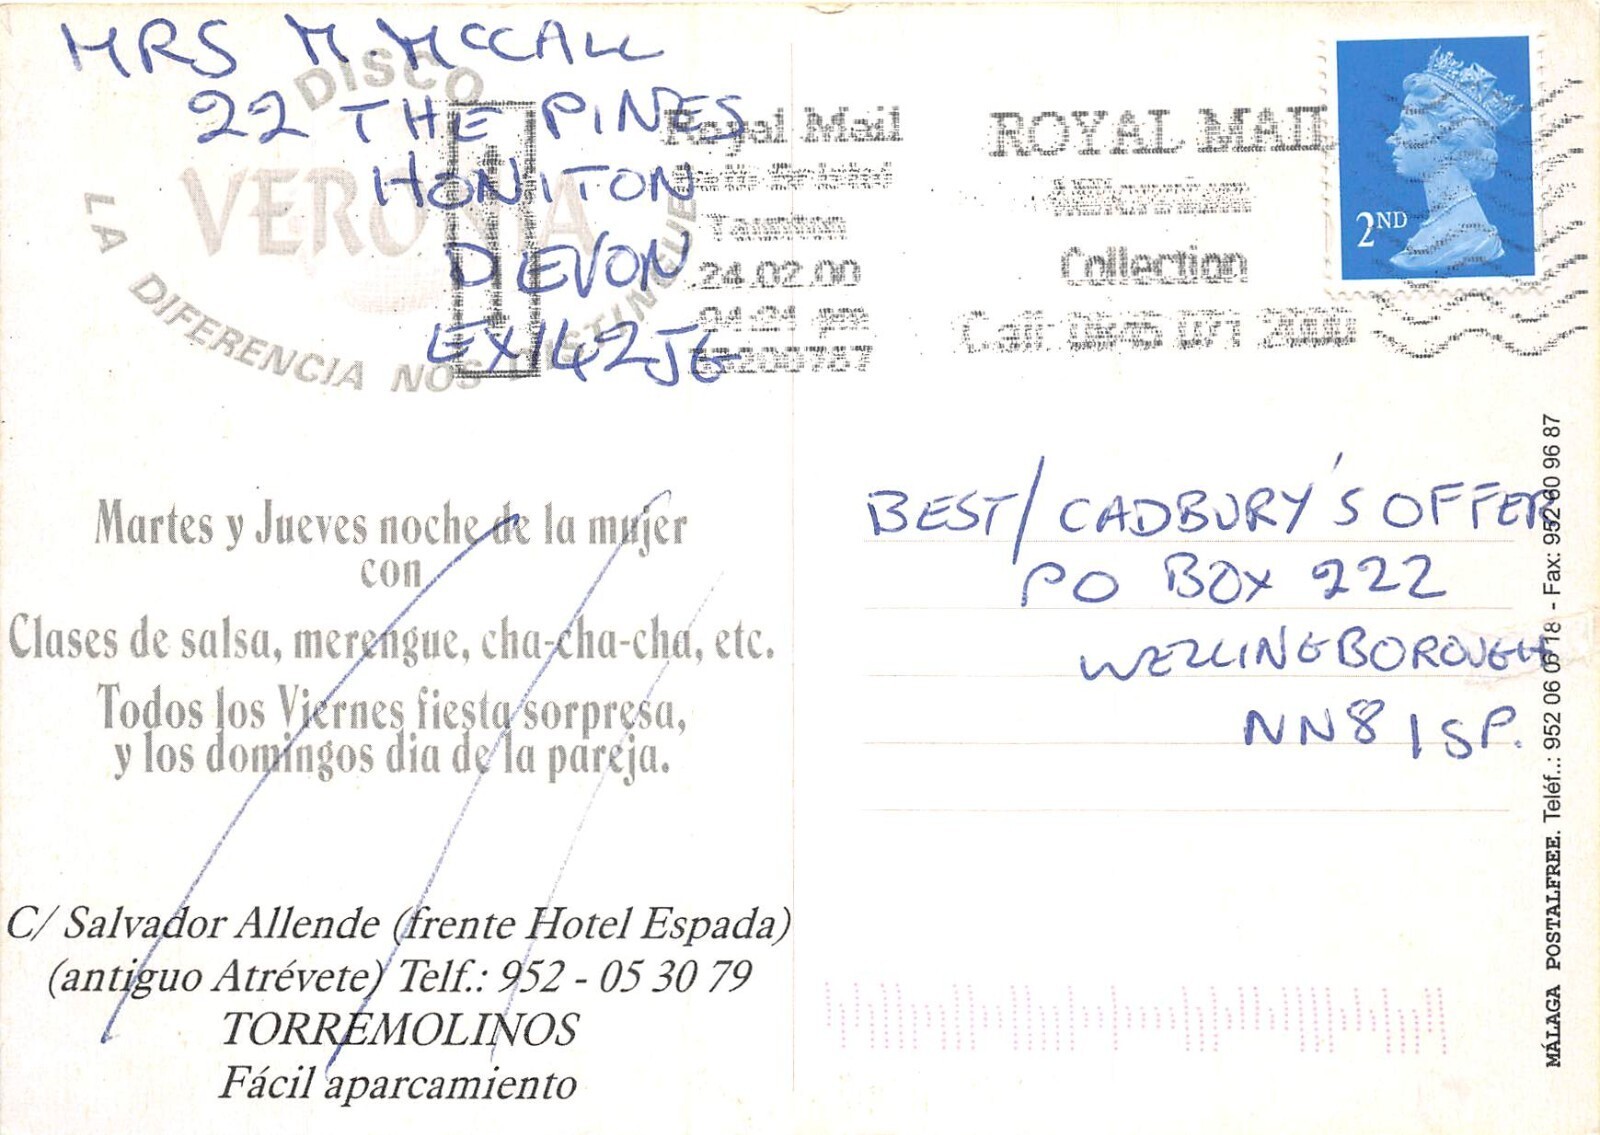 MRS M. MCCALL
22 THE PINES
HONITON
DEVON
EX14 2JG
DISCO
VERONA
LA DIFERENCIA NOS DISTINGUE
Royal Mail
Taunton
24.02.00
04:24 pm
ROYAL MAIL
Collection
Call:
2ND
Martes y Jueves noche de la mujer
con
Clases de salsa, merengue, cha-cha-cha, etc.
Todos los Viernes fiesta sorpresa,
y los domingos dia de la pareja.
C/ Salvador Allende (frente Hotel Espada)
(antiguo Atrévete) Telf.: 952 - 05 30 79
TORREMOLINOS
Fácil aparcamiento
BEST/CADBURY'S OFFER
PO BOX 222
WELLINGBOROUGH
NN8 1SP.
MÁLAGA POSTALFREE. Teléf.: 952 06 07 18 - Fax: 952 60 96 87